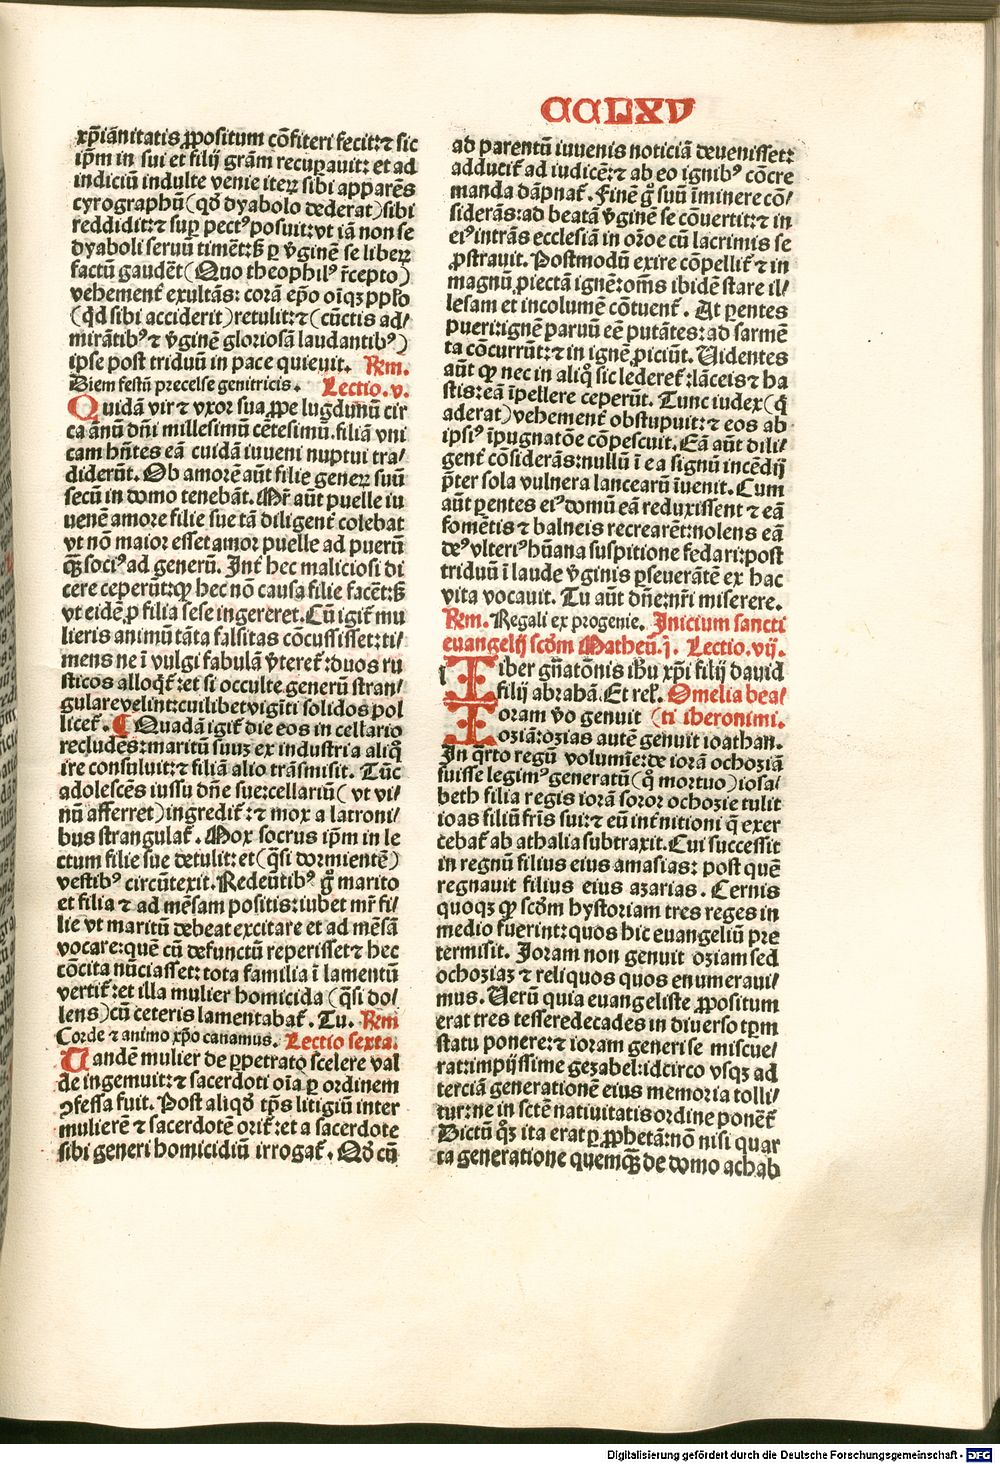 CCLXV
xp̄iānitatis ꝓpositum cōfiteri fecit:⁊ sic
ip̄m in sui et filij grām recuꝑauit: et ad
indiciū indulte venie iteꝝ sibi apparēs
cyrographū (qđ dyabolo dederat) sibi
reddidit:⁊ suꝑ pectꝰ posuit: vt iā non se
dyaboli seruū timēt: sꝫ ꝑ v̄ginē se libeꝝ
factū gaudēt (Quo theophilꝰ r̄cepto)
vehemenť exultās: corā ep̄o oīqꝫ pplo
(qđ sibi acciderit) retulit:⁊ (cūctis ad/
mirātibꝰ ⁊ v̄ginē gloriosā laudantibꝰ)
ipse post triduū in pace quieuit. Rm.
Diem festū precelse genitricis. Lectio.v.
Quidā vir ⁊ vxor sua ꝓpe lugdunū cir
ca annū dn̄i millesimū cētesimū. filiā vni
cam hn̄tes eā cuidā iuueni nuptui tra/
diderūt. Ob amorē aūt filie generꝝ suū
secū in domo tenebāt. Mr̄ aūt puelle iu
uenē amore filie sue tā diligenť colebat
vt nō maior esset amor puelle ad puerū
qꝫ socꝰ ad generū. Inť hec maliciosi di
cere ceperūt: ꝙ hec nō causa filie facēt: sꝫ
vt eidē ꝓ filia sese ingereret. Cū igiť mu
lieris animū tāta falsitas cōcussisset: ti/
mens ne ī vulgi fabulā v̄tereť: duos ru
sticos alloqť: et si occulte generū stran/
gulare velint: cuilibet vigīti solidos pol
liceť. ¶ Quadā igiť die eos in cellario
recludēs: maritū suuꝫ ex industria aliq̊
ire consuluit:⁊ filiā alio trāsmisit. Tūc
adolescēs iussu dn̄e sue: cellariū (vt vi/
nū afferret) ingrediť:⁊ mox a latroni/
bus strangulať. Mox socrus ip̄m in le
ctum filie sue detulit: et (q̄si dormientē)
vestibꝰ circūtexit. Redeūtibꝰ g̊ marito
et filia ⁊ ad mēsam positis: iubet mr̄ fi/
lie vt maritū debeat excitare et ad mēsā
vocare: quē cū defunctū reperisset ⁊ hec
cōcita nūciasset: tota familia ī lamentū
vertiť: et illa mulier homicida (q̄si do/
lens) cū ceteris lamentabať. Tu. Rm
Corde ⁊ animo xp̄o canamus. Lectio sexta.
Tandē mulier de ꝑpetrato scelere val
de ingemuit:⁊ sacerdoti oīa ꝑ ordinem
ꝯfessa fuit. Post aliqđ tp̄s litigiū inter
mulierē ⁊ sacerdotē oriť: et a sacerdote
sibi generi homicidiū irrogať. Qđ cū
ad parentū iuuenis noticiā deuenisset:
adduciť ad iudicē:⁊ ab eo ignibꝰ cōcre
manda dāpnať. Finē g̊ suū īminere cō/
siderās: ad beatā v̄ginē se cōuertit:⁊ in
eiꝰ intrās ecclesiā in or̄oe cū lacrimis se
ꝓstrauit. Postmodū exire cōpelliť ⁊ in
magnū ꝓiectā ignē: om̄s ibidē stare il/
lesam et incolumē cōtuenť. At ꝑentes
pueri: ignē paruū eē putātes: ad sarmē
ta cōcurrūt:⁊ in ignē ꝓiciūt. Uidentes
aūt ꝙ nec in aliq̊ sic ledereť: lāceis ⁊ ha
stis: eā īpellere ceperūt. Tunc iudex (q̄
aderat) vehemenť obstupuit:⁊ eos ab
ipsiꝰ īpugnatōe cōpescuit. Eā aūt dili/
genť cōsiderās: nullū ī ea signū incēdij
p̄ter sola vulnera lancearū īuenit. Cum
aūt ꝑentes eiꝰ domū eā reduxissent ⁊ eā
fomētis ⁊ balneis recrearēt: nolens eā
deꝰ vlteriꝰ hūana suspitione fedari: post
triduū ī laude v̄ginis ꝑseuerātē ex hac
vita vocauit. Tu aūt dn̄e: nr̄i miserere.
Rm. Regali ex progenie. Inicium sancti
euangelij scďm Matheū.j. Lectio.vij.
Liber gn̄atōnis ihū xp̄i filij dauid
filij abrahā. Et reł. Omelia bea/
Ioram v̊o genuit (ti iheronimi.
oziā: ozias autē genuit ioathan.
In q̄rto regū volumīe: de iorā ochoziā
fuisse legimꝰ generatū (q̊ mortuo) iosa/
beth filia regis iorā soror ochozie tulit
ioas filiū fr̄is sui:⁊ eū inťnitioni q̄ exer
cebať ab athalia subtraxit. Cui successit
in regnū filius eius amasias: post quē
regnauit filius eius azarias. Cernis
quoqꝫ ꝙ scďm hystoriam tres reges in
medio fuerint: quos hic euangeliū pre
termisit. Joram non genuit oziam sed
ochoziaꝫ ⁊ reliquos quos enumeraui/
mus. Uerū quia euangeliste ꝓpositum
erat tres tesseredecades in diuerso tp̄m
statu ponere:⁊ ioram generi se miscue/
rat: impijssime gezabel: idcirco vsqꝫ ad
terciā generationē eius memoria tolli/
tur: ne in sctē natiuitatis ordine ponēť
Dictū q̊ꝫ ita erat ꝑ ꝓphetā: nō nisi quar
ta generatione quemqꝫ de domo achab
Digitalisierung gefördert durch die Deutsche Forschungsgemeinschaft - DFG